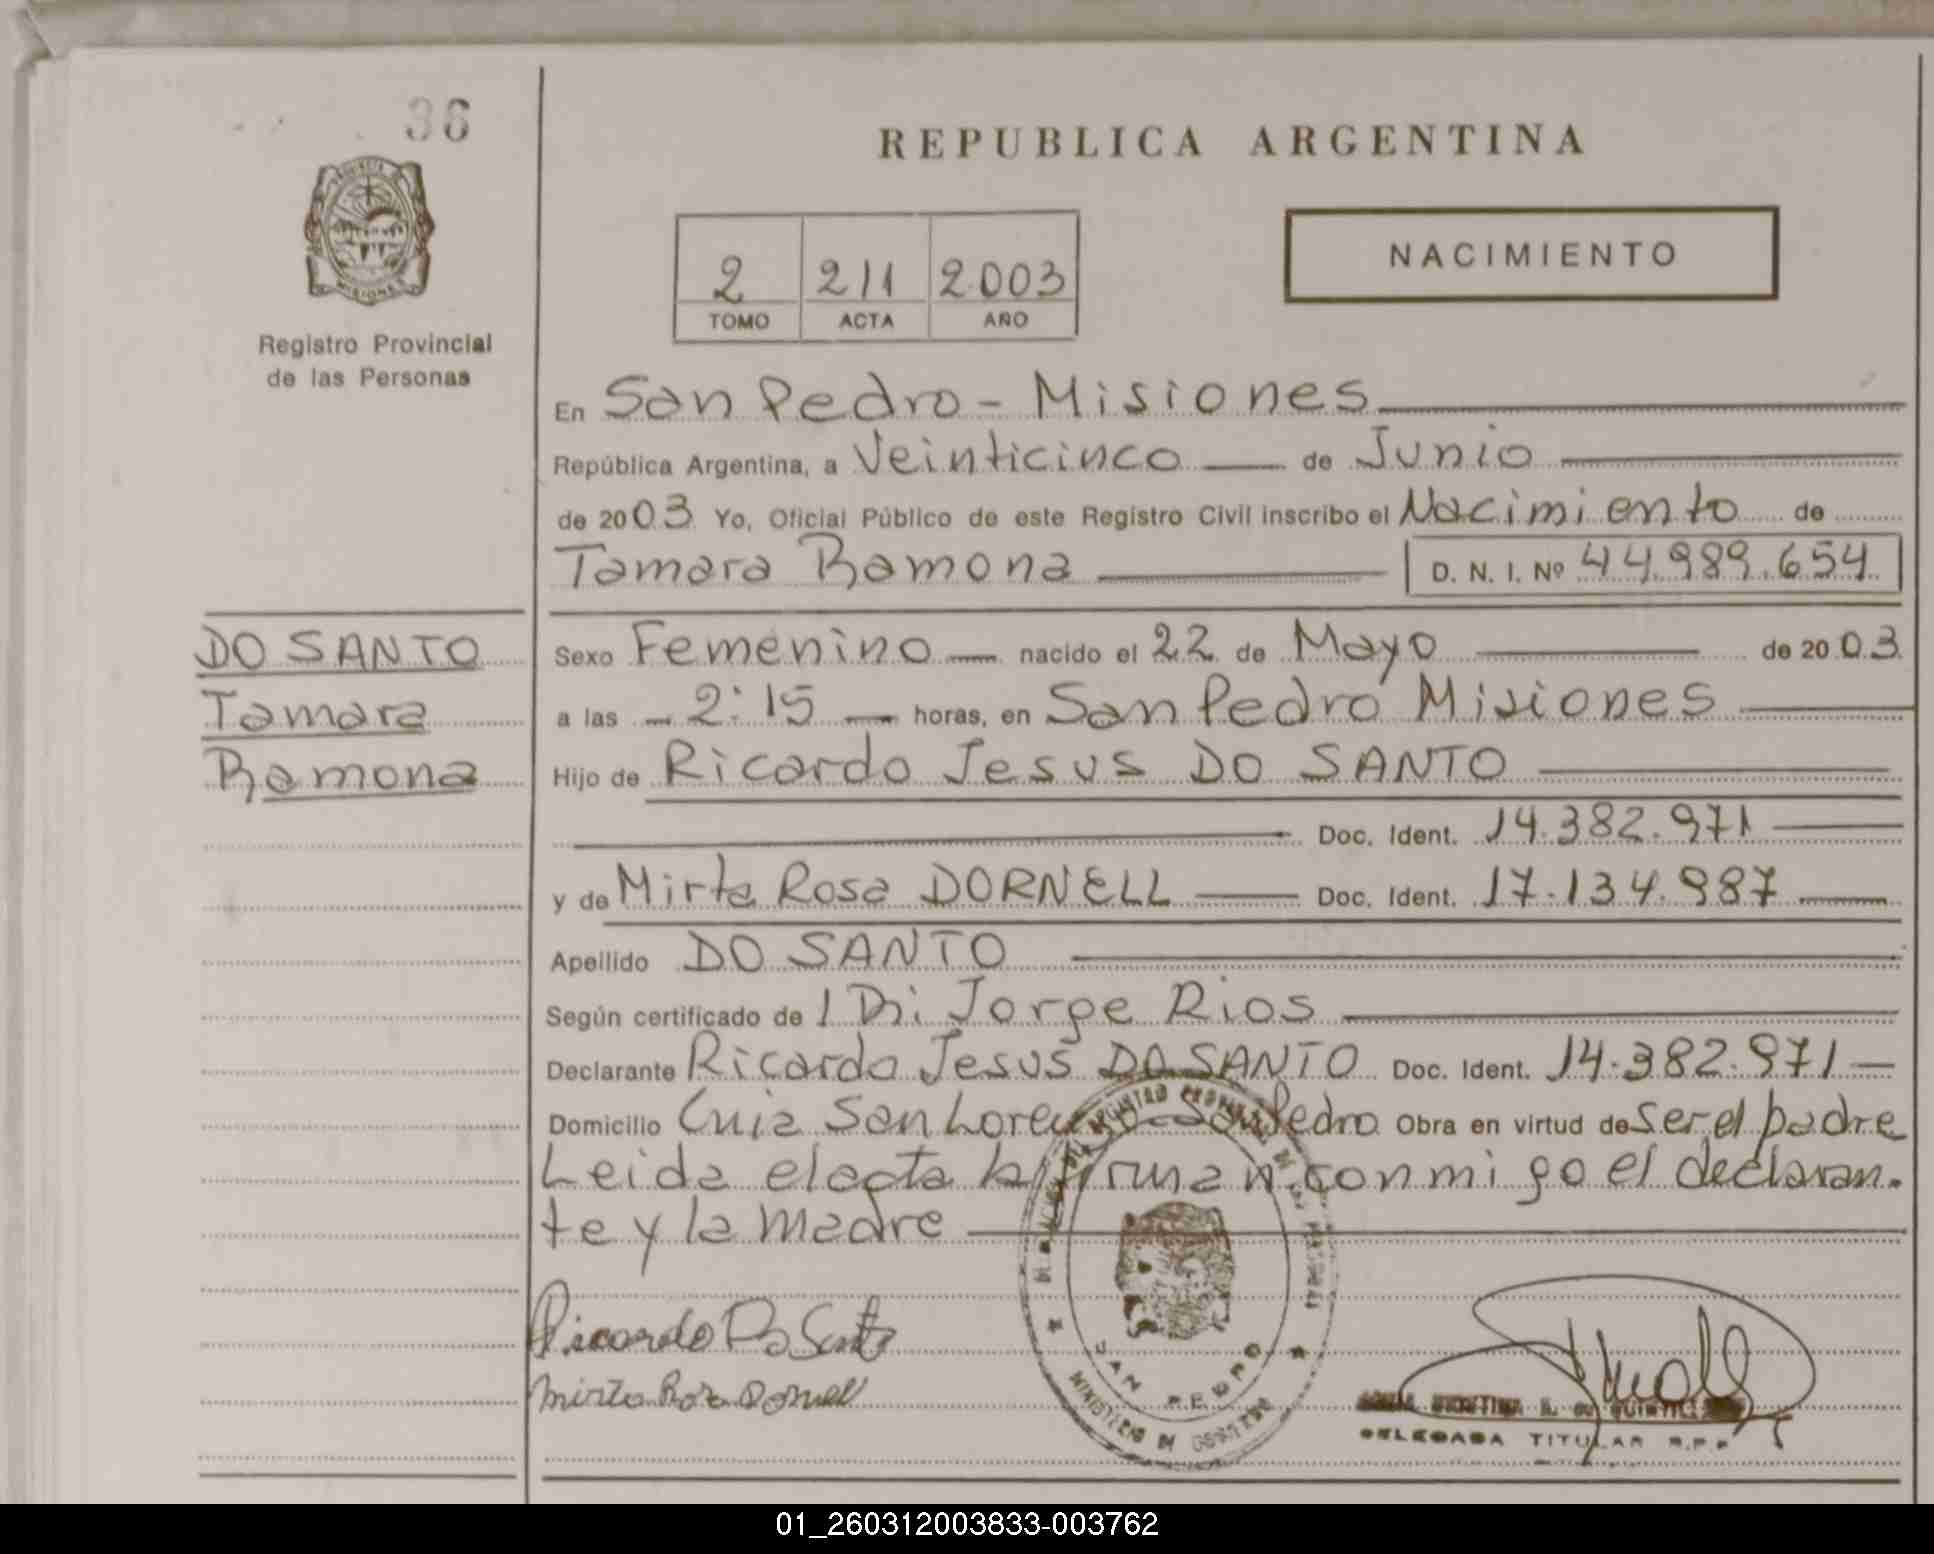 36
REPUBLICA ARGENTINA
NACIMIENTO
2 211 2003
TOMO ACTA AÑO
MISIONES
Registro Provincial
de las Personas
En San Pedro - Misiones
República Argentina, a Veinticinco de Junio
de 2003 Yo, Oficial Público de este Registro Civil inscribo el Nacimiento de
Tamara Ramona D. N. I. Nº 44.989.654
DO SANTO
Tamara
Ramona
Sexo Femenino nacido el 22 de Mayo de 2003
a las 2:15 horas, en San Pedro Misiones
Hijo de Ricardo Jesus DO SANTO
Doc. Ident. 14.382.971
y de Mirta Rosa DORNELL Doc. Ident. 17.134.987
Apellido DO SANTO
Según certificado de Jorge Rios
Declarante Ricardo Jesus DO SANTO Doc. Ident. 14.382.971
Domicilio San Lorenzo - San Pedro Obra en virtud de ser el padre
Leida el acta la firman conmigo el declaran-
te y la madre
Ricardo Do Santo
Mirta Rosa Dornell
SAN PEDRO
MINISTERIO DE GOBIERNO
DELEGADA TITULAR R.P.P
01_260312003833-003762